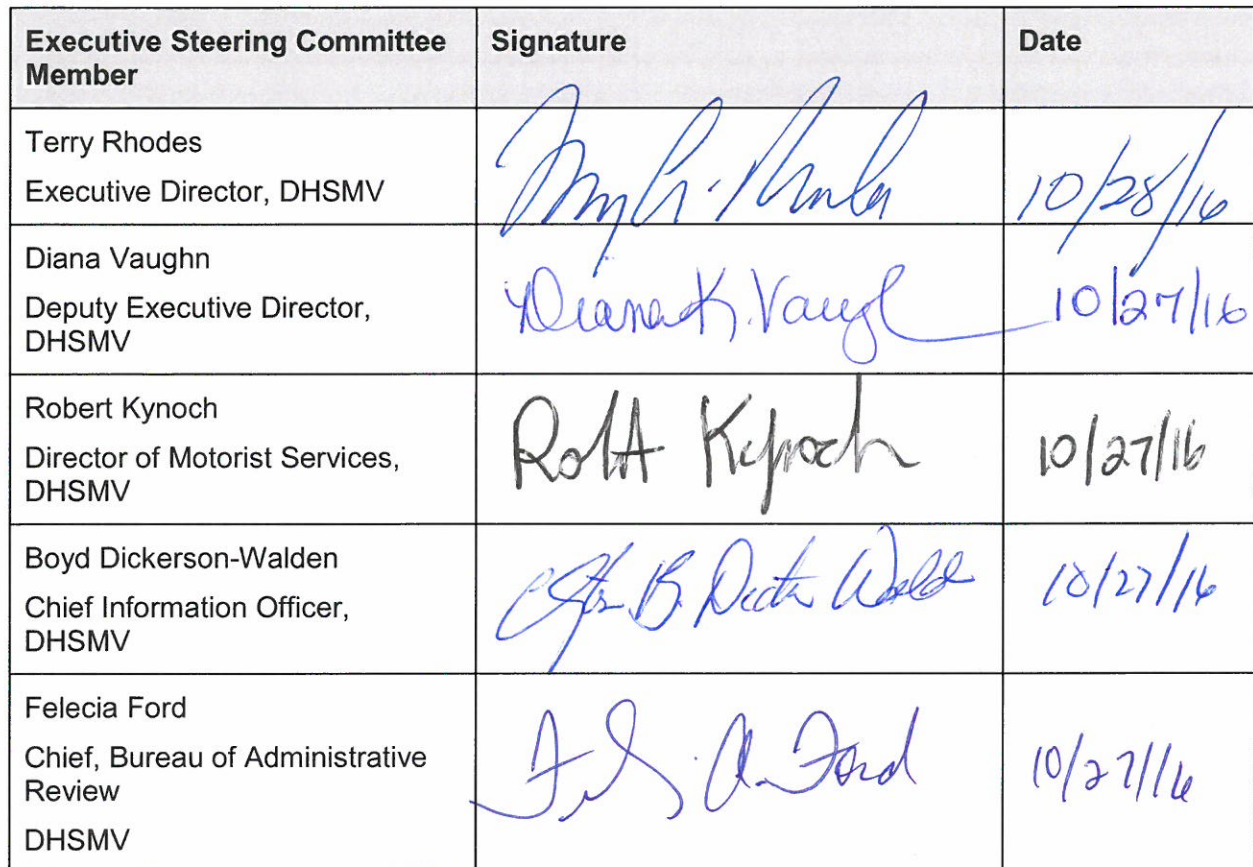 Executive Steering Committee Signature Date
Member
Terry Rhodes
Executive Director, DHSMV
10/28/16
Diana Vaughn
Deputy Executive Director,
DHSMV
Diana K. Vaughn 10/27/16
Robert Kynoch
Director of Motorist Services,
DHSMV
Robt A Kynoch 10/27/16
Boyd Dickerson-Walden
Chief Information Officer,
DHSMV
B. 10/27/16
Felecia Ford
Chief, Bureau of Administrative
Review
DHSMV
A. Ford 10/27/16